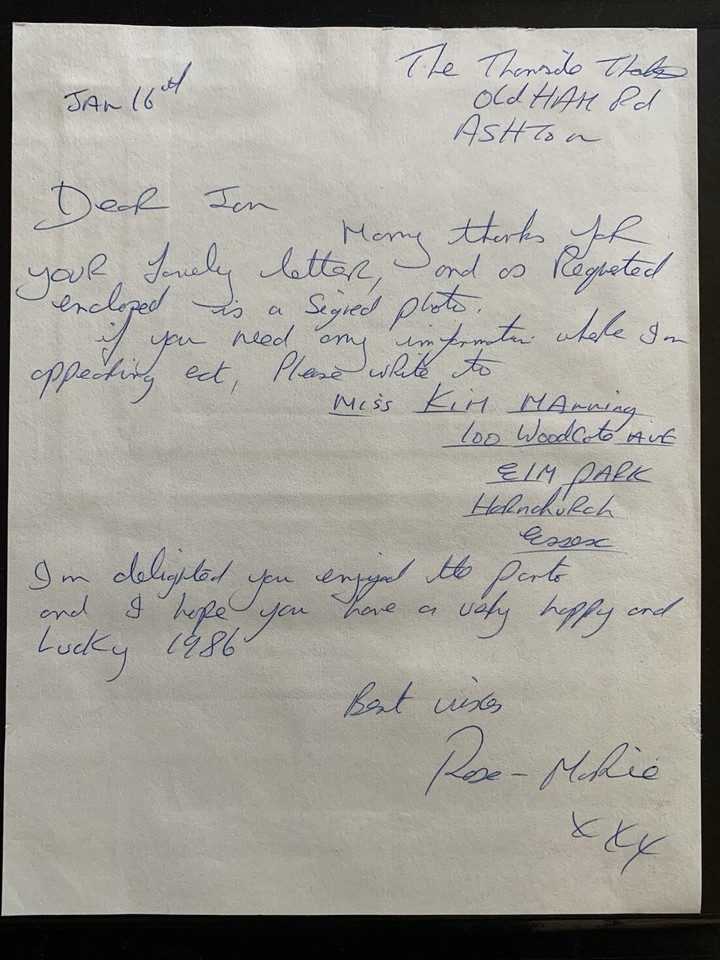 JAN 16th
The Thameside Theatre
OldHAM Rd
ASHTon
Dear Ian
Many thanks foR
youR lovely letteR, and as Requested
enclosed is a Signed photo.
if you need any information where I'm
appeaRing ect, Please write to
Miss KiM MAnning
100 WoodCote AVE
ElM PARK
HoRnchuRch
Essex
I'm delighted you enjoyed the panto
and I hope you have a very happy and
Lucky 1986
Best wishes
Rose-MaRie
xxx